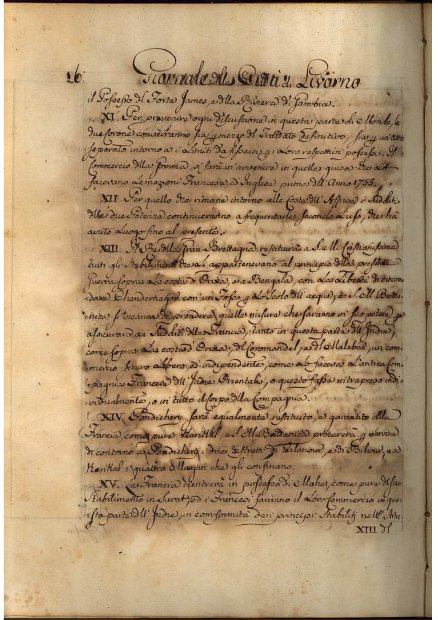 26
Giornale di Livorno
il Possesso del Forte James, e della Riviera di Gambia.
XI. Per prevenire ogni discussione in questa parte di Mondo, le
due Corone converranno sia per mezzo del Trattato definitivo, sia per un atto
separato intorno a i Limiti da fissarsi per i Loro rispettivi possessi. Il
Commercio della Gomma si farà in avvenire in quella guisa che l
facevano le nazioni Francese, ed Inglese prima dell' Anno 1755.
XII. Per quello che rimane intorno alle Coste dell' Affrica i sudditi
delle due Potenze continueranno a frequentarle secondo l'uso, che ha
avuto luogo fino al presente.
XIII. Il Re della Gran Brettagna restituirà a S. M. Cristianissima
tutti gli Stabilimenti che le appartenevano al principio della presente
Guerra sopra la costa d' Orixa, e a Bengala, con la libertà di circon
dare Chandernagor con un Fosso per lo scolo dell' acque, e S. M. Britta
nica s' incarica di prendere quelle misure che saranno in suo potere per
assicurare ai sudditi della Francia, tanto in questa parte dell' Indie,
come sopra la costa d' Orixa, del Coromandel, e del Malabar, un com
mercio sicuro libero, ed independente, come lo faceva l' antica Com
pagnia Francese dell' Indie Orientali, o questo fosse intrapreso indi
vidualmente, o in tutto il corpo della Compagnia.
XIV. Pondichery sarà egualmente restituito, e garantito alla
Francia come pure Karikal, e S. M. Brittanica procurerà per servire
di contorno a Pondichery i due distretti di Valanour, e di Bahour, e a
Karikal i quattro Magan che gli confinano.
XV. La Francia rientrerà in possesso di Mahe, come pure del suo
Stabilimento in Suratt, ed i Francesi faranno il Loro Commercio in que
sta parte dell' Indie, in conformità dei principi stabiliti nell' Arti
XIII. del